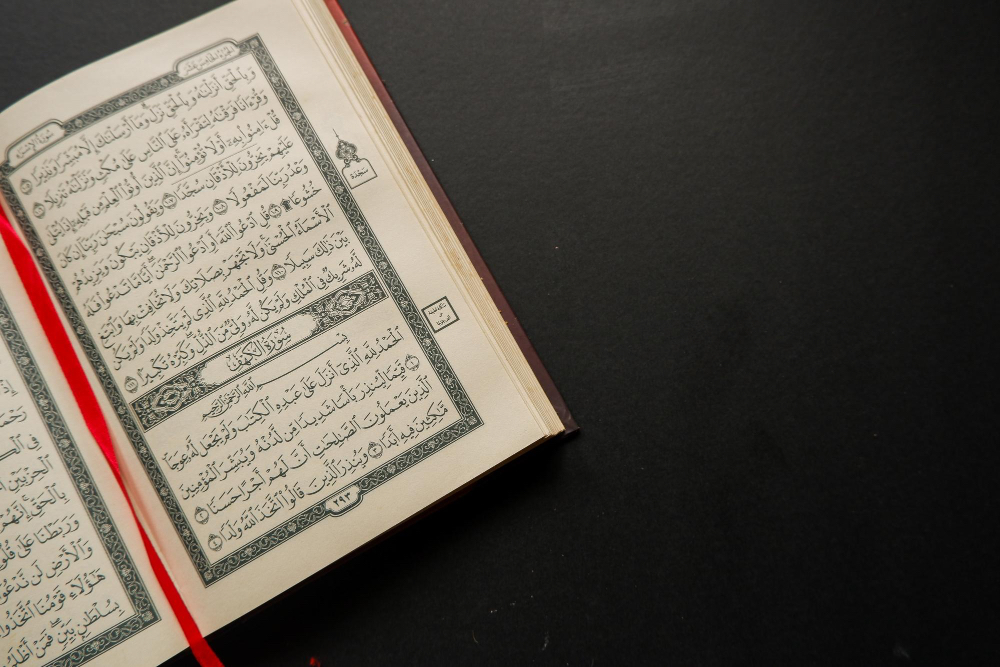 الجزء الخامس عشر
سورة الإسراء
وَبِٱلْحَقِّ أَنزَلْنَٰهُ وَبِٱلْحَقِّ نَزَلَ وَمَآ أَرْسَلْنَٰكَ إِلَّا مُبَشِّرًا وَنَذِيرًا ١٠٥
وَقُرْءَانًا فَرَقْنَٰهُ لِتَقْرَأَهُۥ عَلَى ٱلنَّاسِ عَلَىٰ مُكْثٍ وَنَزَّلْنَٰهُ تَنزِيلًا ١٠٦
قُلْ ءَامِنُوا۟ بِهِۦٓ أَوْ لَا تُؤْمِنُوٓا۟ إِنَّ ٱلَّذِينَ أُوتُوا۟ ٱلْعِلْمَ مِن قَبْلِهِۦٓ إِذَا يُتْلَىٰ
عَلَيْهِمْ يَخِرُّونَ لِلْأَذْقَانِ سُجَّدًا ١٠٧ وَيَقُولُونَ سُبْحَٰنَ رَبِّنَآ إِن كَانَ
وَعْدُ رَبِّنَا لَمَفْعُولًا ١٠٨ وَيَخِرُّونَ لِلْأَذْقَانِ يَبْكُونَ وَيَزِيدُهُمْ
خُشُوعًا ۩ ١٠٩ قُلِ ٱدْعُوا۟ ٱللَّهَ أَوِ ٱدْعُوا۟ ٱلرَّحْمَٰنَ أَيًّا مَّا تَدْعُوا۟ فَلَهُ
ٱلْأَسْمَآءُ ٱلْحُسْنَىٰ وَلَا تَجْهَرْ بِصَلَاتِكَ وَلَا تُخَافِتْ بِهَا وَٱبْتَغِ
بَيْنَ ذَٰلِكَ سَبِيلًا ١١٠ وَقُلِ ٱلْحَمْدُ لِلَّهِ ٱلَّذِى لَمْ يَتَّخِذْ وَلَدًا وَلَمْ يَكُن
لَّهُۥ شَرِيكٌ فِى ٱلْمُلْكِ وَلَمْ يَكُن لَّهُۥ وَلِىٌّ مِّنَ ٱلذُّلِّ وَكَبِّرْهُ تَكْبِيرًۢا ١١١
سُورَةُ الكَهْفِ
بِسْمِ ٱللَّهِ ٱلرَّحْمَٰنِ ٱلرَّحِيمِ
ٱلْحَمْدُ لِلَّهِ ٱلَّذِىٓ أَنزَلَ عَلَىٰ عَبْدِهِ ٱلْكِتَٰبَ وَلَمْ يَجْعَل لَّهُۥ عِوَجَا ١
قَيِّمًا لِّيُنذِرَ بَأْسًا شَدِيدًا مِّن لَّدُنْهُ وَيُبَشِّرَ ٱلْمُؤْمِنِينَ
ٱلَّذِينَ يَعْمَلُونَ ٱلصَّٰلِحَٰتِ أَنَّ لَهُمْ أَجْرًا حَسَنًا ٢
مَّٰكِثِينَ فِيهِ أَبَدًا ٣ وَيُنذِرَ ٱلَّذِينَ قَالُوا۟ ٱتَّخَذَ ٱللَّهُ وَلَدًا ٤
٢٩٣
سجدة
فِى
ٱلْحِزْبَيْنِ
بِٱلْحَقِّ إِنَّهُمْ
وَرَبَطْنَا عَلَىٰ
وَٱلْأَرْضِ لَن
هَٰٓؤُلَآءِ قَوْمُنَا ٱتَّخَذُوا۟
بِسُلْطَٰنٍۭ بَيِّنٍ فَمَنْ